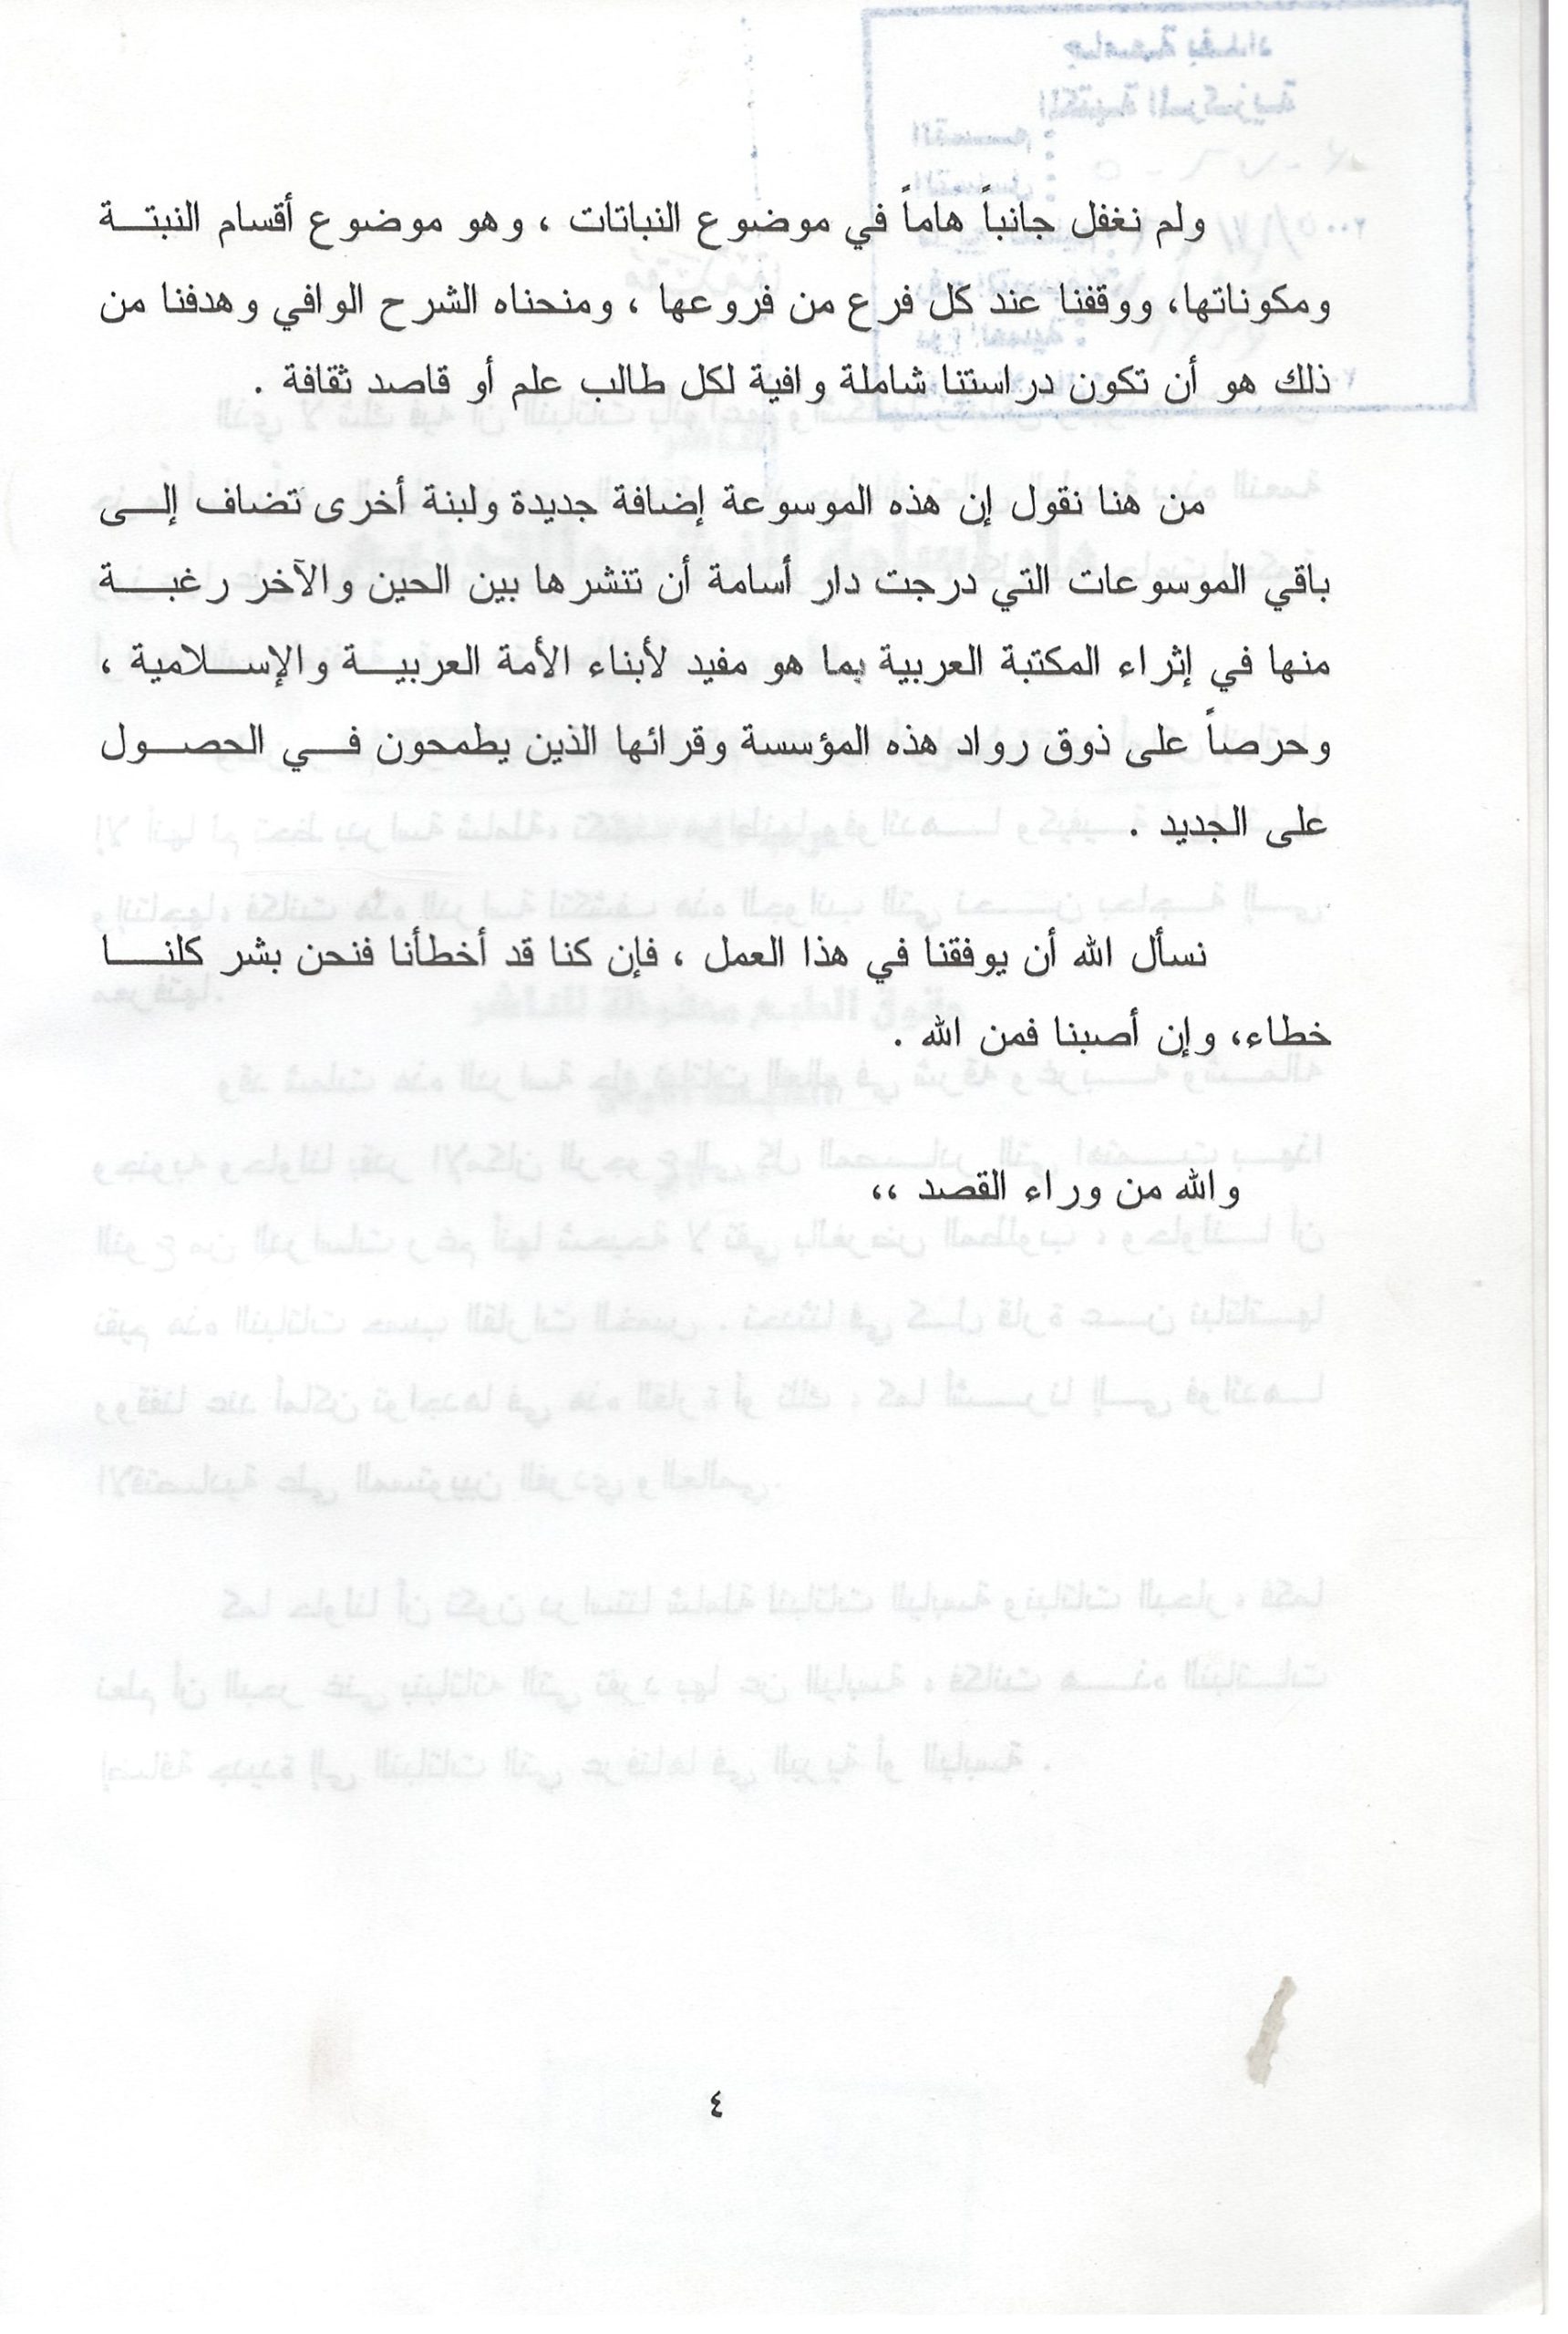 ولم نغفل جانباً هاماً في موضوع النباتات ، وهو موضوع أقسام النبتة
ومكوناتها، ووقفنا عند كل فرع من فروعها ، ومنحناه الشرح الوافي وهدفنا من
ذلك هو أن تكون دراستنا شاملة وافية لكل طالب علم أو قاصد ثقافة .
من هنا نقول إن هذه الموسوعة إضافة جديدة ولبنة أخرى تضاف إلى
باقي الموسوعات التي درجت دار أسامة أن تنشرها بين الحين والآخر رغبة
منها في إثراء المكتبة العربية بما هو مفيد لأبناء الأمة العربية والإسلامية ،
وحرصاً على ذوق رواد هذه المؤسسة وقرائها الذين يطمحون في الحصول
على الجديد .
نسأل الله أن يوفقنا في هذا العمل ، فإن كنا قد أخطأنا فنحن بشر كلنا
خطاء، وإن أصبنا فمن الله .
والله من وراء القصد ،،
٤